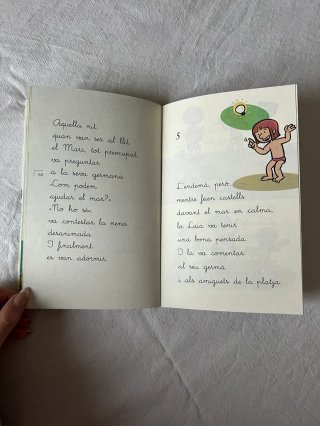 Aquella nit,
quan van ser al llit,
el Marc, tot preocupat
va preguntar
a la seva germana:
«Com podem
ajudar el mar?».
«No ho sé»,
va contestar la nena
desanimada.
I finalment
es van adormir.
5
L'endemà, però,
mentre feien castells
davant el mar en calma,
la Laia va tenir
una bona pensada.
I la va comentar
al seu germà
i als amiguets de la platja.